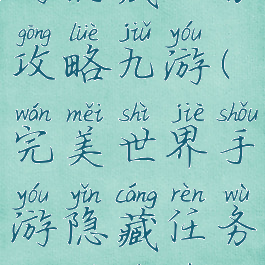 gōng lüè jiǔ yóu
攻略九游(
wán měi shì jiè shǒu
完美世界手
yóu yǐn cáng rèn wù
游隐藏任务